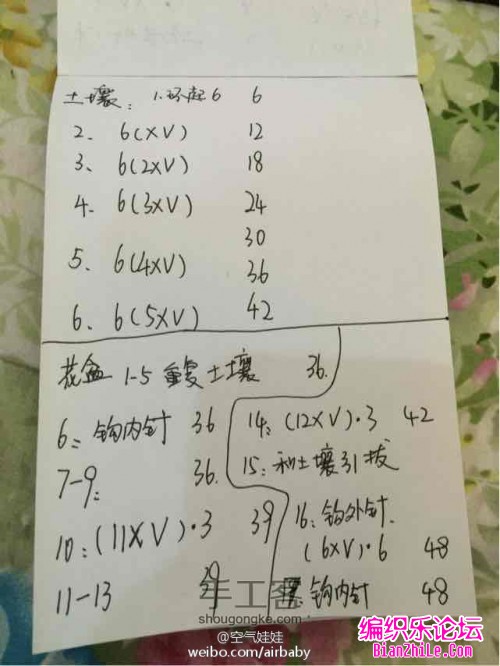 土壤: 1.环起6 6
2. 6(XV) 12
3. 6(2XV) 18
4. 6(3XV) 24
30
5. 6(4XV) 36
6. 6(5XV) 42
花盆 1-5 重复土壤 36.
6: 钩内针 36
7-9: 36.
10: (11XV)·3 39
11-13 39
14: (12XV)·3 42
15: 和土壤引拔
16: 钩外针.
(6XV)·6 48
钩内针 48
手工客
shougongke.com
@空气娃娃
weibo.com/airbaby
编织乐论坛
BianZhiLe.Com